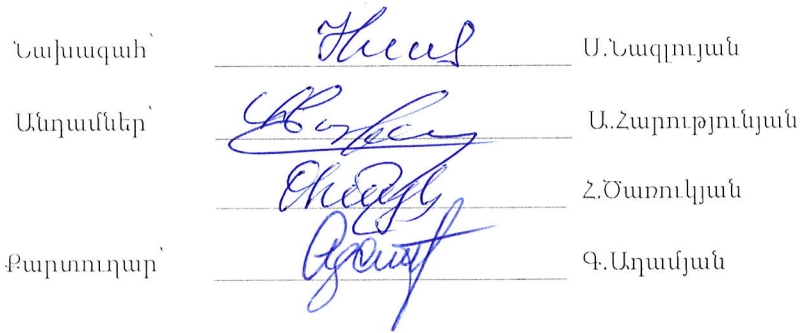 Նախագահ՝ Ս.Նազլույան
Անդամներ՝ Ա.Հարությունյան
Հ.Ծառուկյան
Քարտուղար՝ Գ.Աղամյան